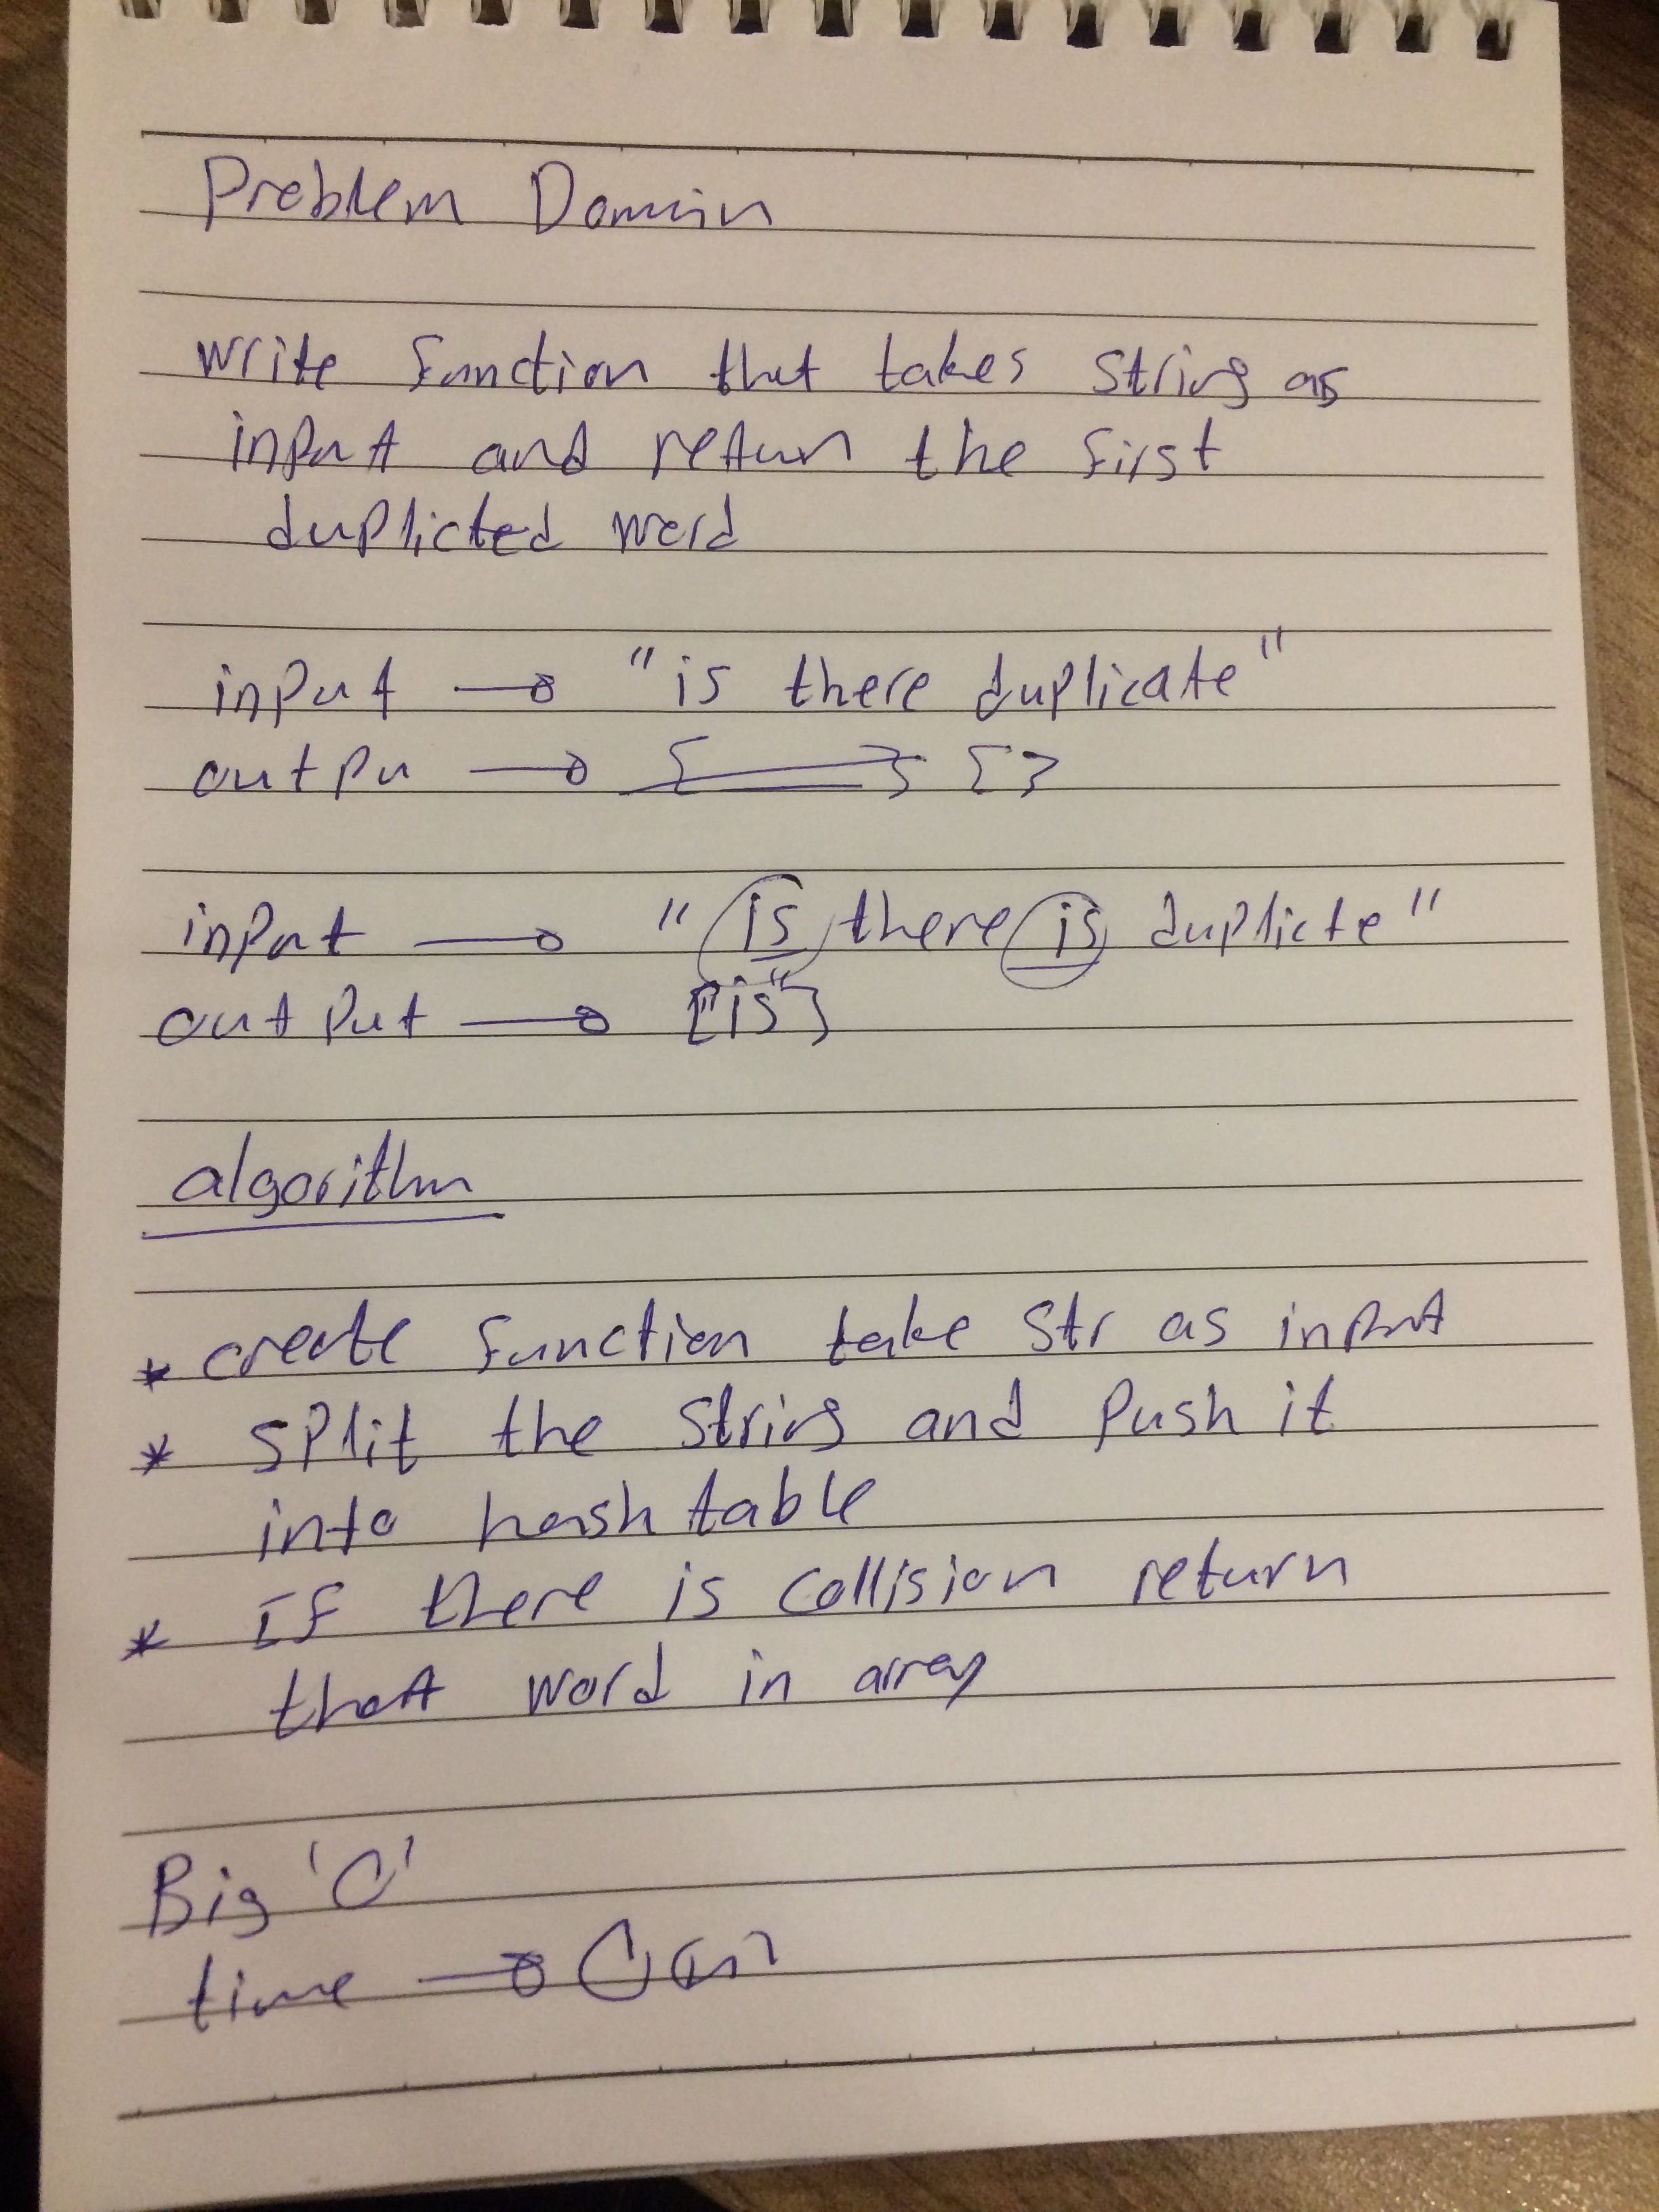 Problem Domain
write function that takes string as
input and return the first
duplicted word
input → "is there duplicate"
outpu → []
input → "is there is duplicte"
output → ["is"]
algorithm
* create function take str as input
* split the string and push it
into hash table
* If there is collision return
that word in array
Big 'O'
time → O(n)